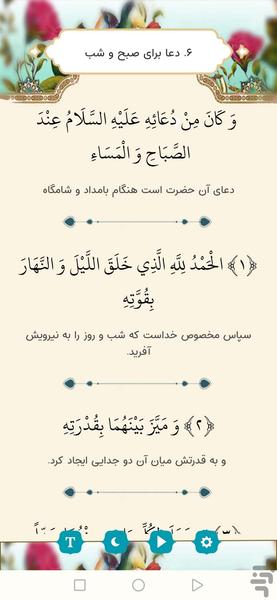 ۶. دعا برای صبح و شب
وَ كَانَ مِنْ دُعَائِهِ عَلَيْهِ السَّلَامُ عِنْدَ
الصَّبَاحِ وَ الْمَسَاءِ
دعای آن حضرت است هنگام بامداد و شامگاه
﴿۱﴾ الْحَمْدُ لِلَّهِ الَّذِي خَلَقَ اللَّيْلَ وَ النَّهَارَ
بِقُوَّتِهِ
سپاس مخصوص خداست که شب و روز را به نیرویش
آفرید.
﴿۲﴾ وَ مَيَّزَ بَيْنَهُمَا بِقُدْرَتِهِ
و به قدرتش میان آن دو جدایی ایجاد کرد.
T